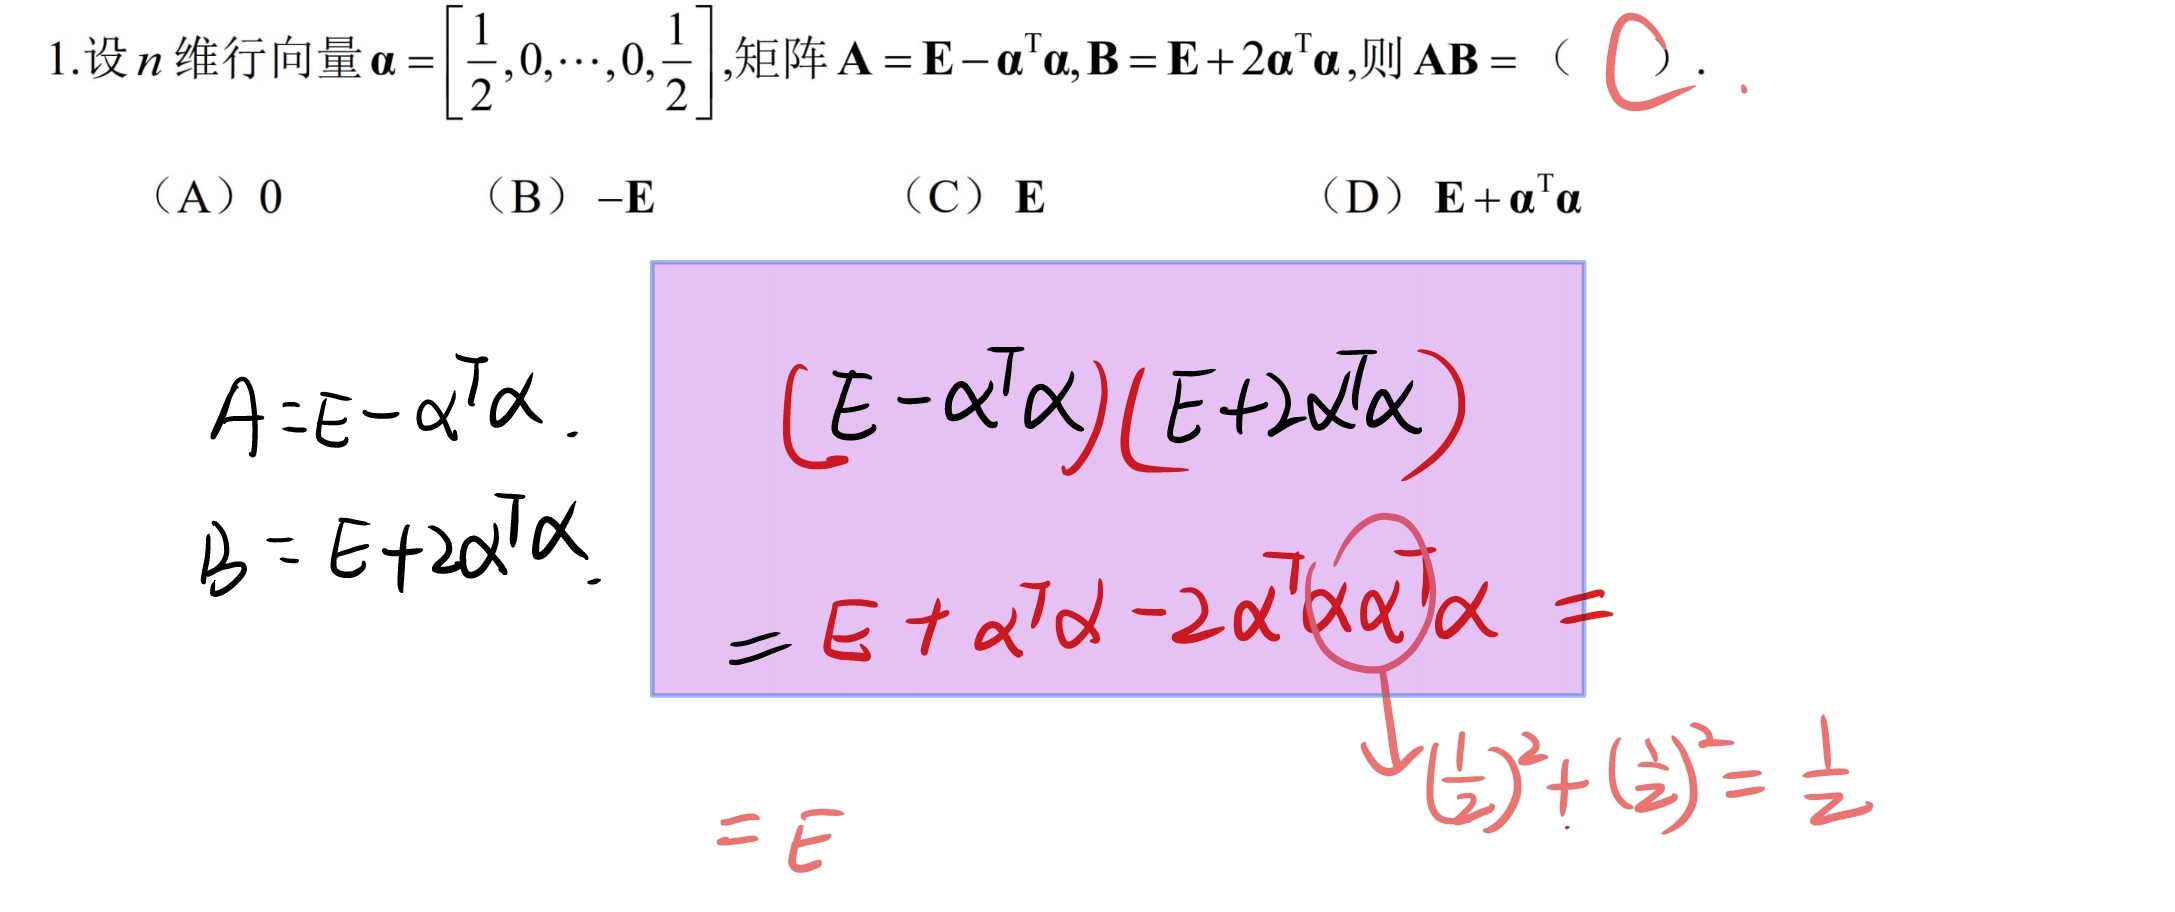 1.设 n 维行向量 α = [1/2, 0, ⋯, 0, 1/2], 矩阵 A = E − αᵀα, B = E + 2αᵀα, 则 AB = （ C ）.
（A）0 （B）−E （C）E （D）E + αᵀα
A = E − αᵀα.
B = E + 2αᵀα.
(E − αᵀα)(E + 2αᵀα)
= E + αᵀα − 2αᵀααᵀα =
(1/2)² + (1/2)² = 1/2
= E